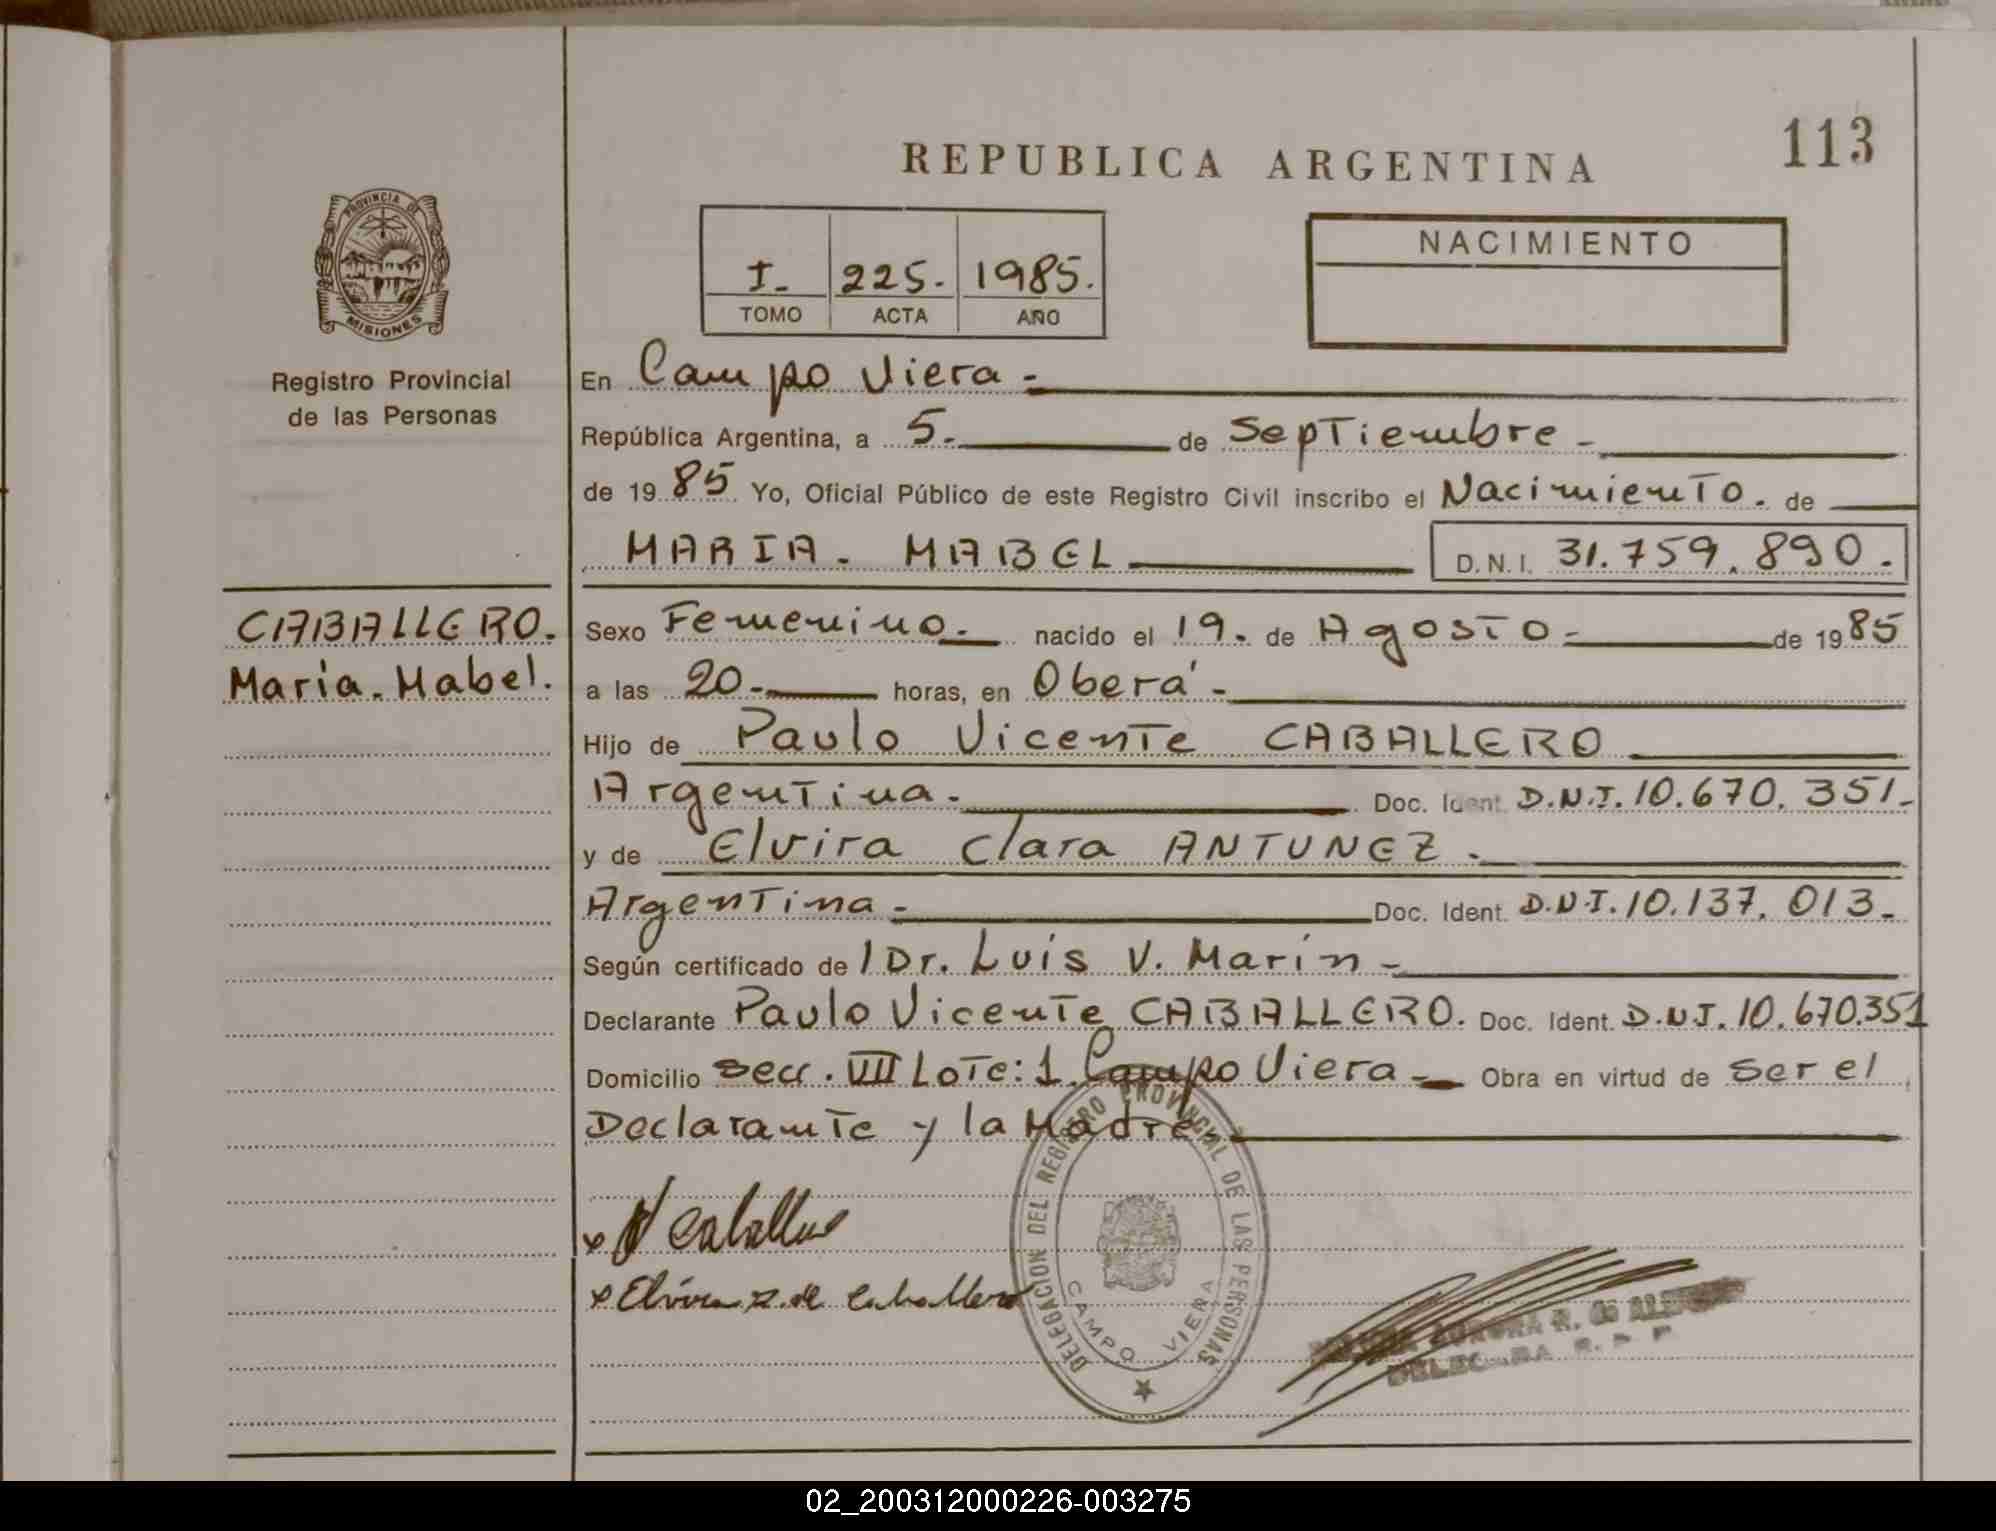 REPUBLICA ARGENTINA
113
PROVINCIA DE
MISIONES
Registro Provincial
de las Personas
I. 225. 1985.
TOMO ACTA AÑO
NACIMIENTO
En Campo Viera -
República Argentina, a 5. de Septiembre -
de 1985 Yo, Oficial Público de este Registro Civil inscribo el Nacimiento. de
MARIA. MABEL D.N.I. 31.759.890.
CABALLERO.
Maria. Mabel.
Sexo Femenino. nacido el 19. de Agosto - de 1985
a las 20- horas, en Oberá -
Hijo de Paulo Vicente CABALLERO
Argentina. Doc. Ident. D.N.I. 10.670.351.-
y de Elvira Clara ANTUNEZ.
Argentina - Doc. Ident. D.N.I. 10.137.013.-
Según certificado de / Dr. Luis V. Marín -
Declarante Paulo Vicente CABALLERO. Doc. Ident. D.N.I. 10.670.351
Domicilio Secc. VIII Lote: 1. Campo Viera - Obra en virtud de Ser el
Declarante y la Madre
x Caballero
x Elvira de Caballero
DELEGACION DEL REGISTRO PROVINCIAL DE LAS PERSONAS
CAMPO VIERA
AURORA R. de
02_200312000226-003275